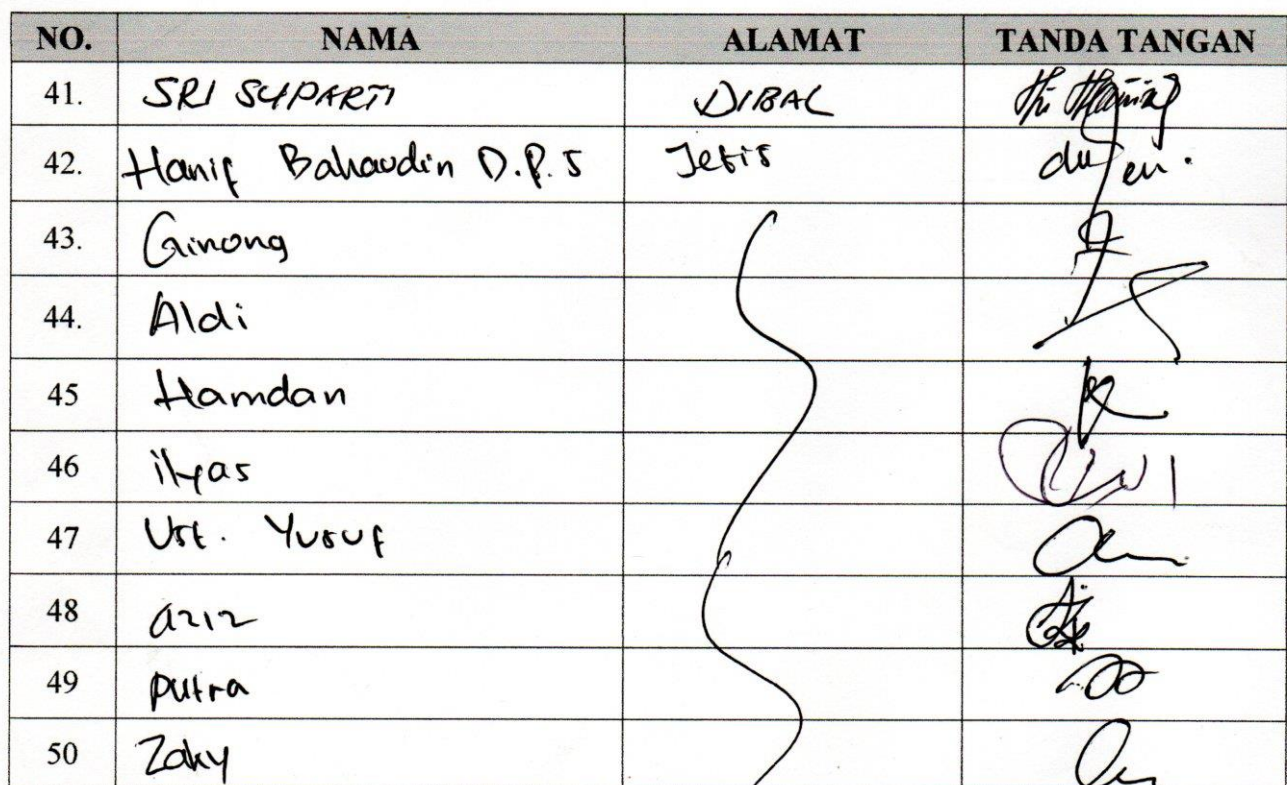 NO. NAMA ALAMAT TANDA TANGAN
41. SRI SUPARTI DIBAL
42. Hanif Bahaudin D.P.S Jetis
43. Ginong
44. Aldi
45 Hamdan
46 ilyas
47 Ust. Yusuf
48 aziz
49 Putra
50 Zaky